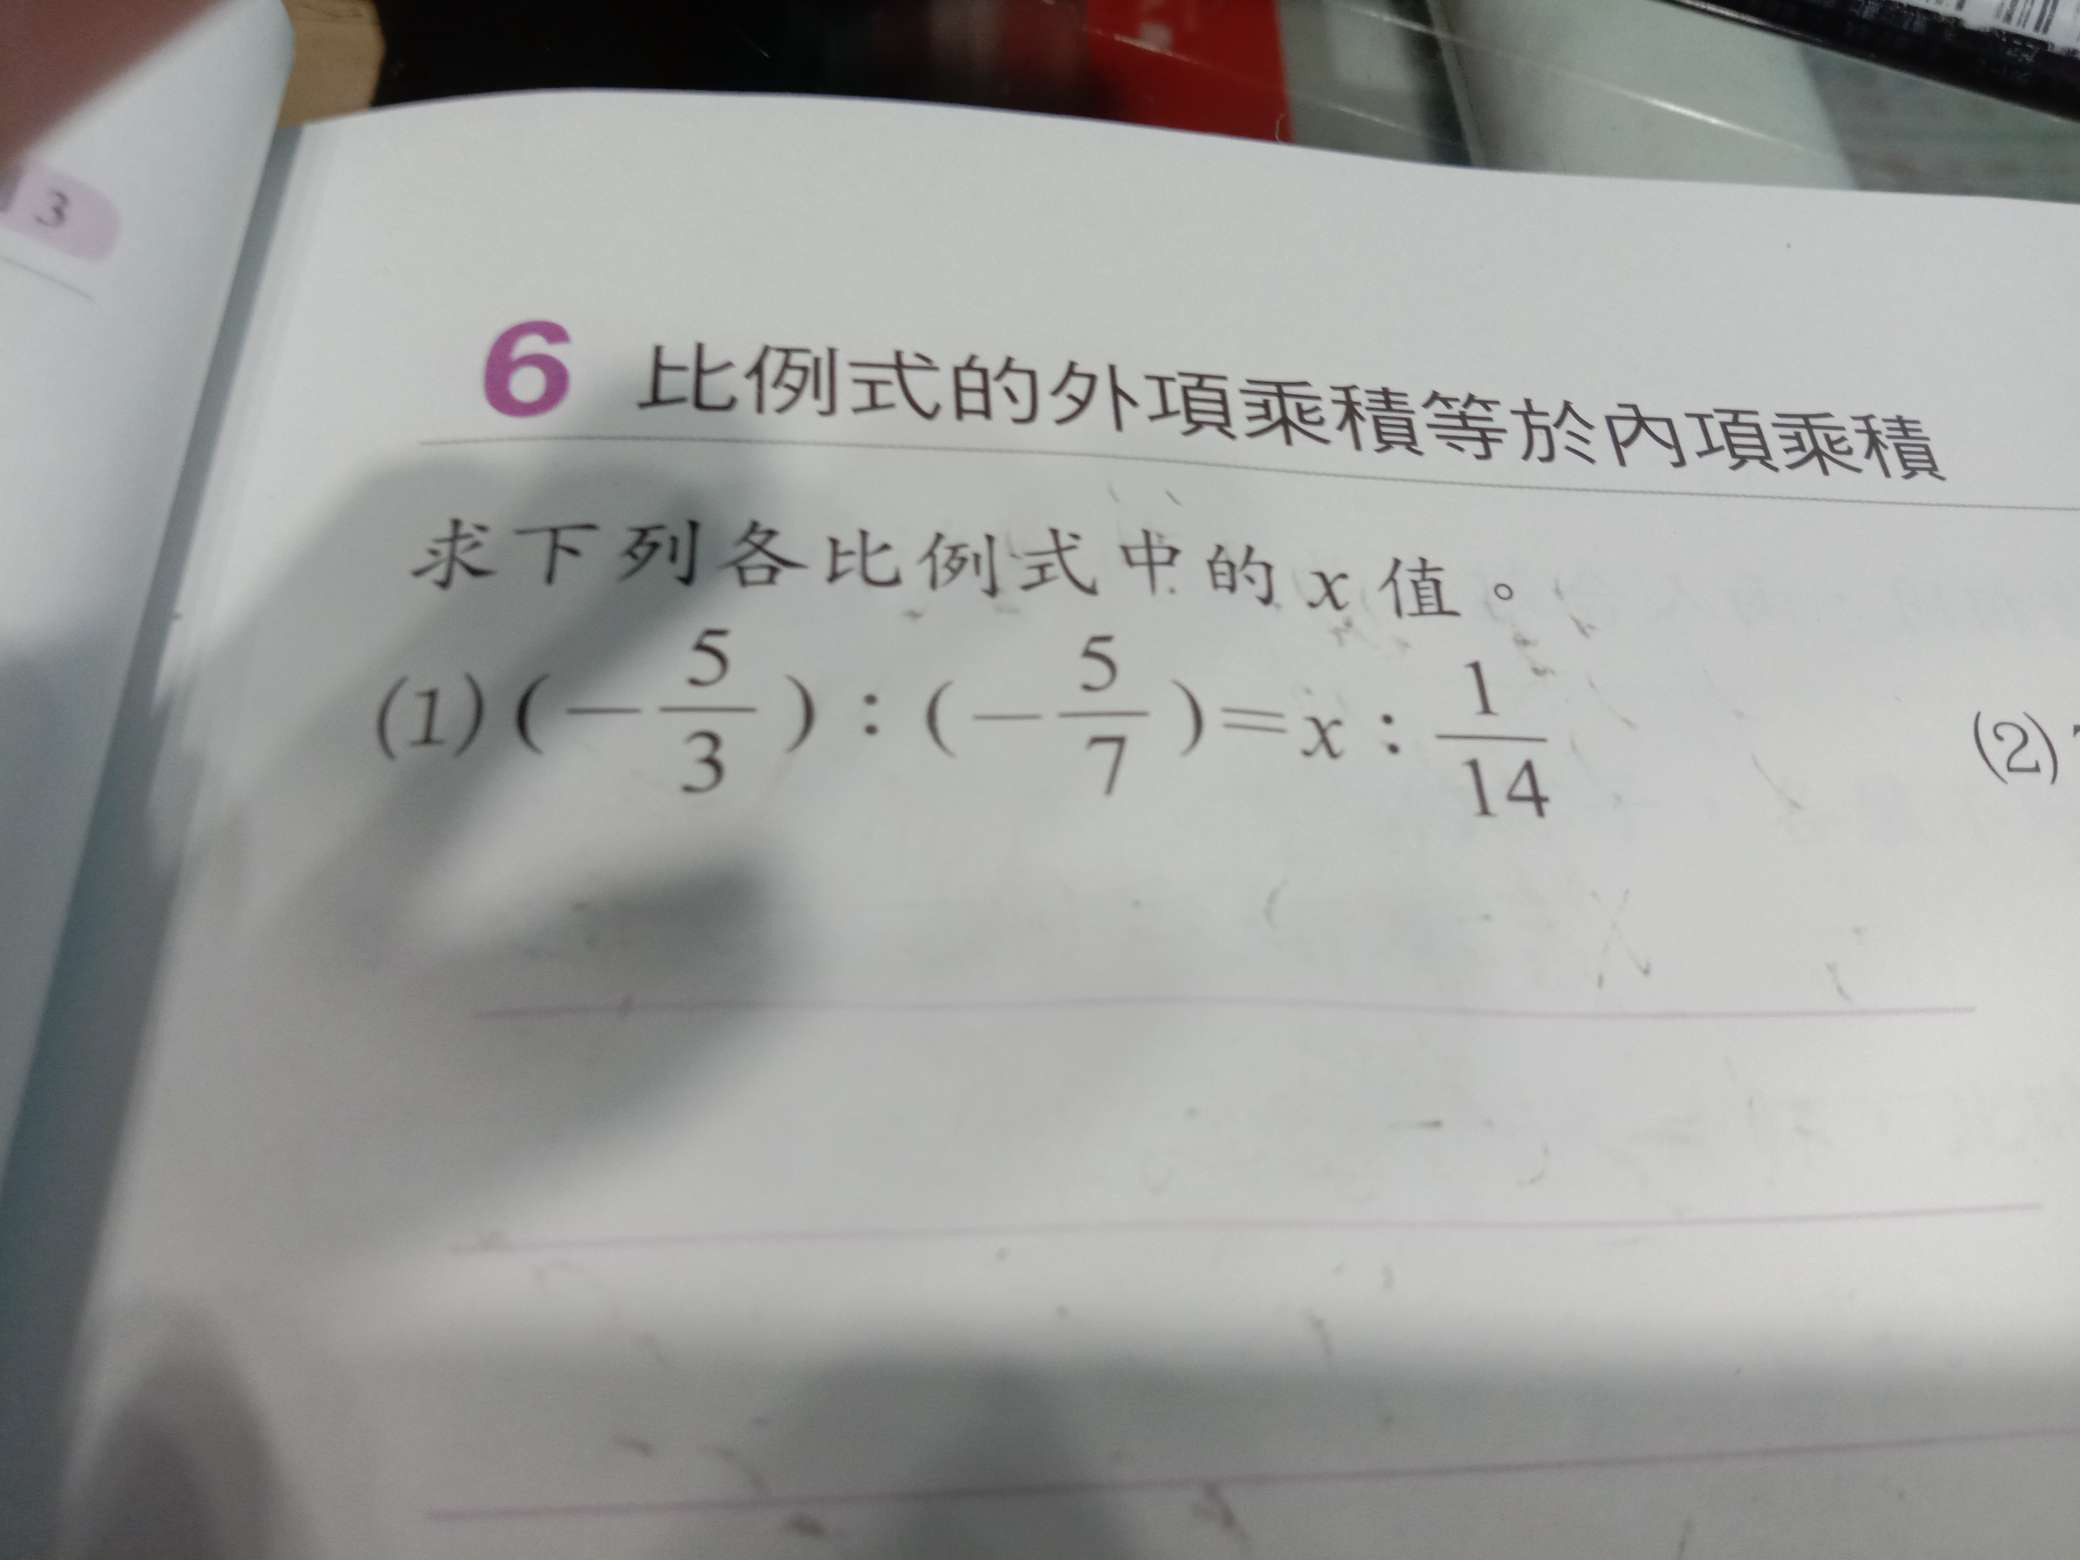 3
6 比例式的外項乘積等於內項乘積
求下列各比例式中的 x 值。
(1) (−5/3) : (−5/7) = x : 1/14
(2)